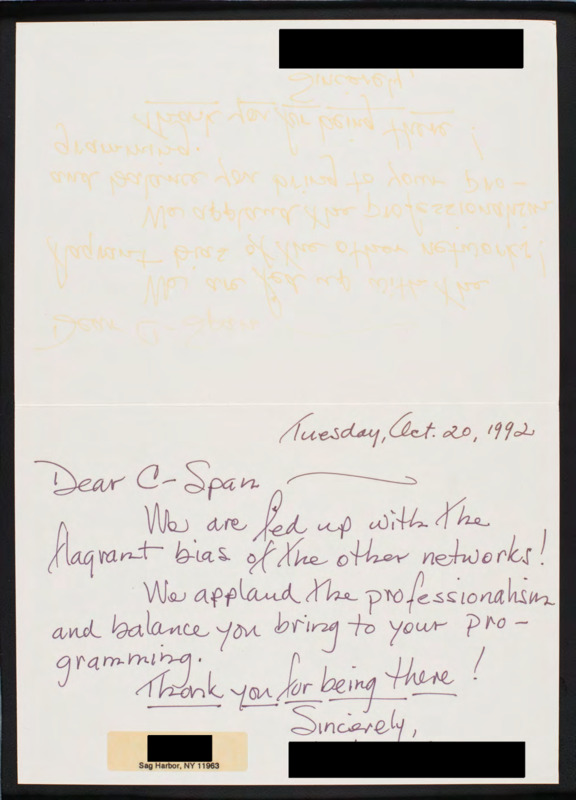 Tuesday, Oct. 20, 1992
Dear C-Span
We are fed up with the
flagrant bias of the other networks!
We applaud the professionalism
and balance you bring to your pro-
gramming.
Thank you for being there!
Sincerely,
Sag Harbor, NY 11963